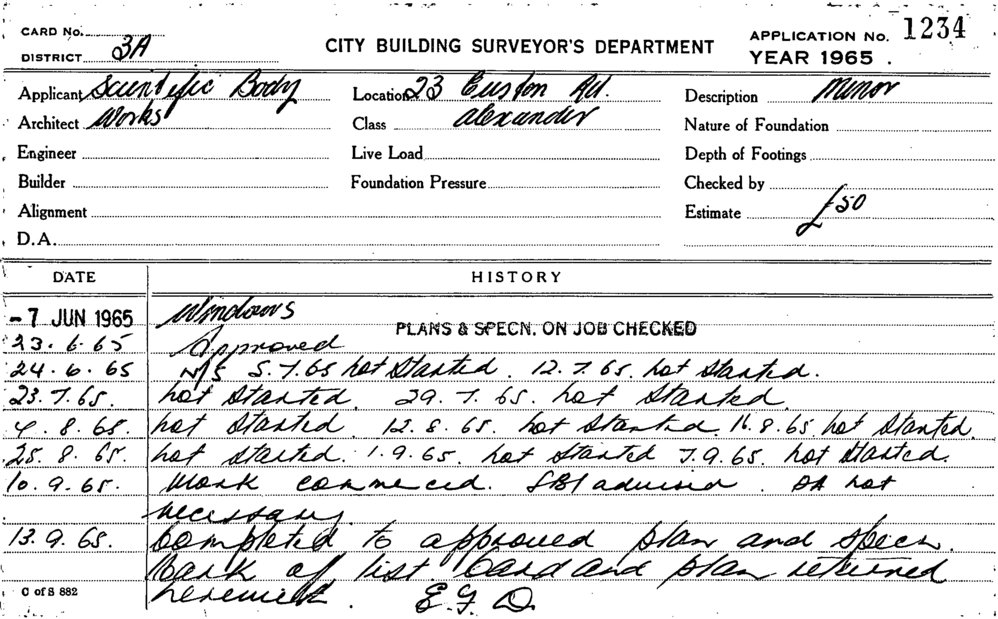 CARD No.
DISTRICT 3A
CITY BUILDING SURVEYOR'S DEPARTMENT
APPLICATION No. 1234
YEAR 1965.
Applicant Scientific Body Location 23 Euston Rd. Description Minor
Architect Works Class Alexander Nature of Foundation
Engineer Live Load Depth of Footings
Builder Foundation Pressure Checked by
Alignment Estimate £50
D.A.
DATE HISTORY
-7 JUN 1965 Windows
PLANS & SPECN. ON JOB CHECKED
23.6.65 Approved
24.6.65 N/S 5.7.65 not started. 12.7.65. not started.
23.7.65. not started. 29.7.65. not started.
4.8.65. not started. 12.8.65. not started. 16.8.65. not started.
25.8.65. not started. 1.9.65. not started 7.9.65. not started.
10.9.65. Work commenced. SBI advised. DA not
necessary.
13.9.65. Completed to approved plan and specn.
of list. Card and plan returned
herewith. E.G.D.
C of S 882